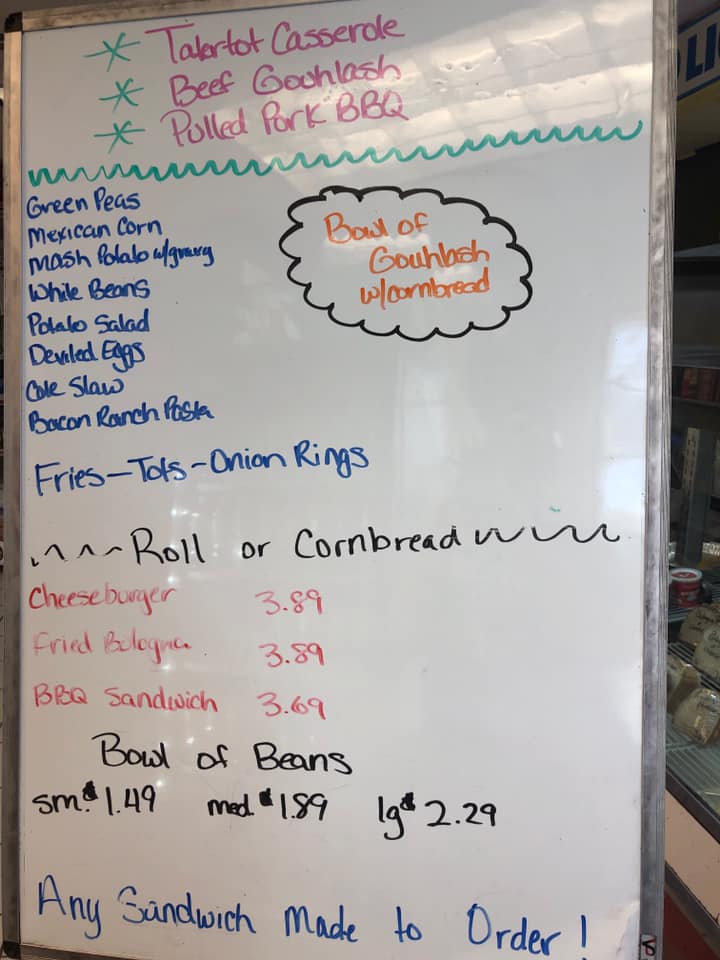 * Tatertot Casserole
* Beef Gouhlash
* Pulled Pork BBQ
Green Peas
Mexican Corn
Mash Potato w/gravy
White Beans
Potato Salad
Deviled Eggs
Cole Slaw
Bacon Ranch Pasta
Bowl of
Gouhlash
w/cornbread
Fries-Tots-Onion Rings
Roll or Cornbread
Cheeseburger 3.89
Fried Bologna 3.89
BBQ Sandwich 3.69
Bowl of Beans
sm. $1.49 med $1.89 lg $2.29
Any Sandwich Made to Order!
LI